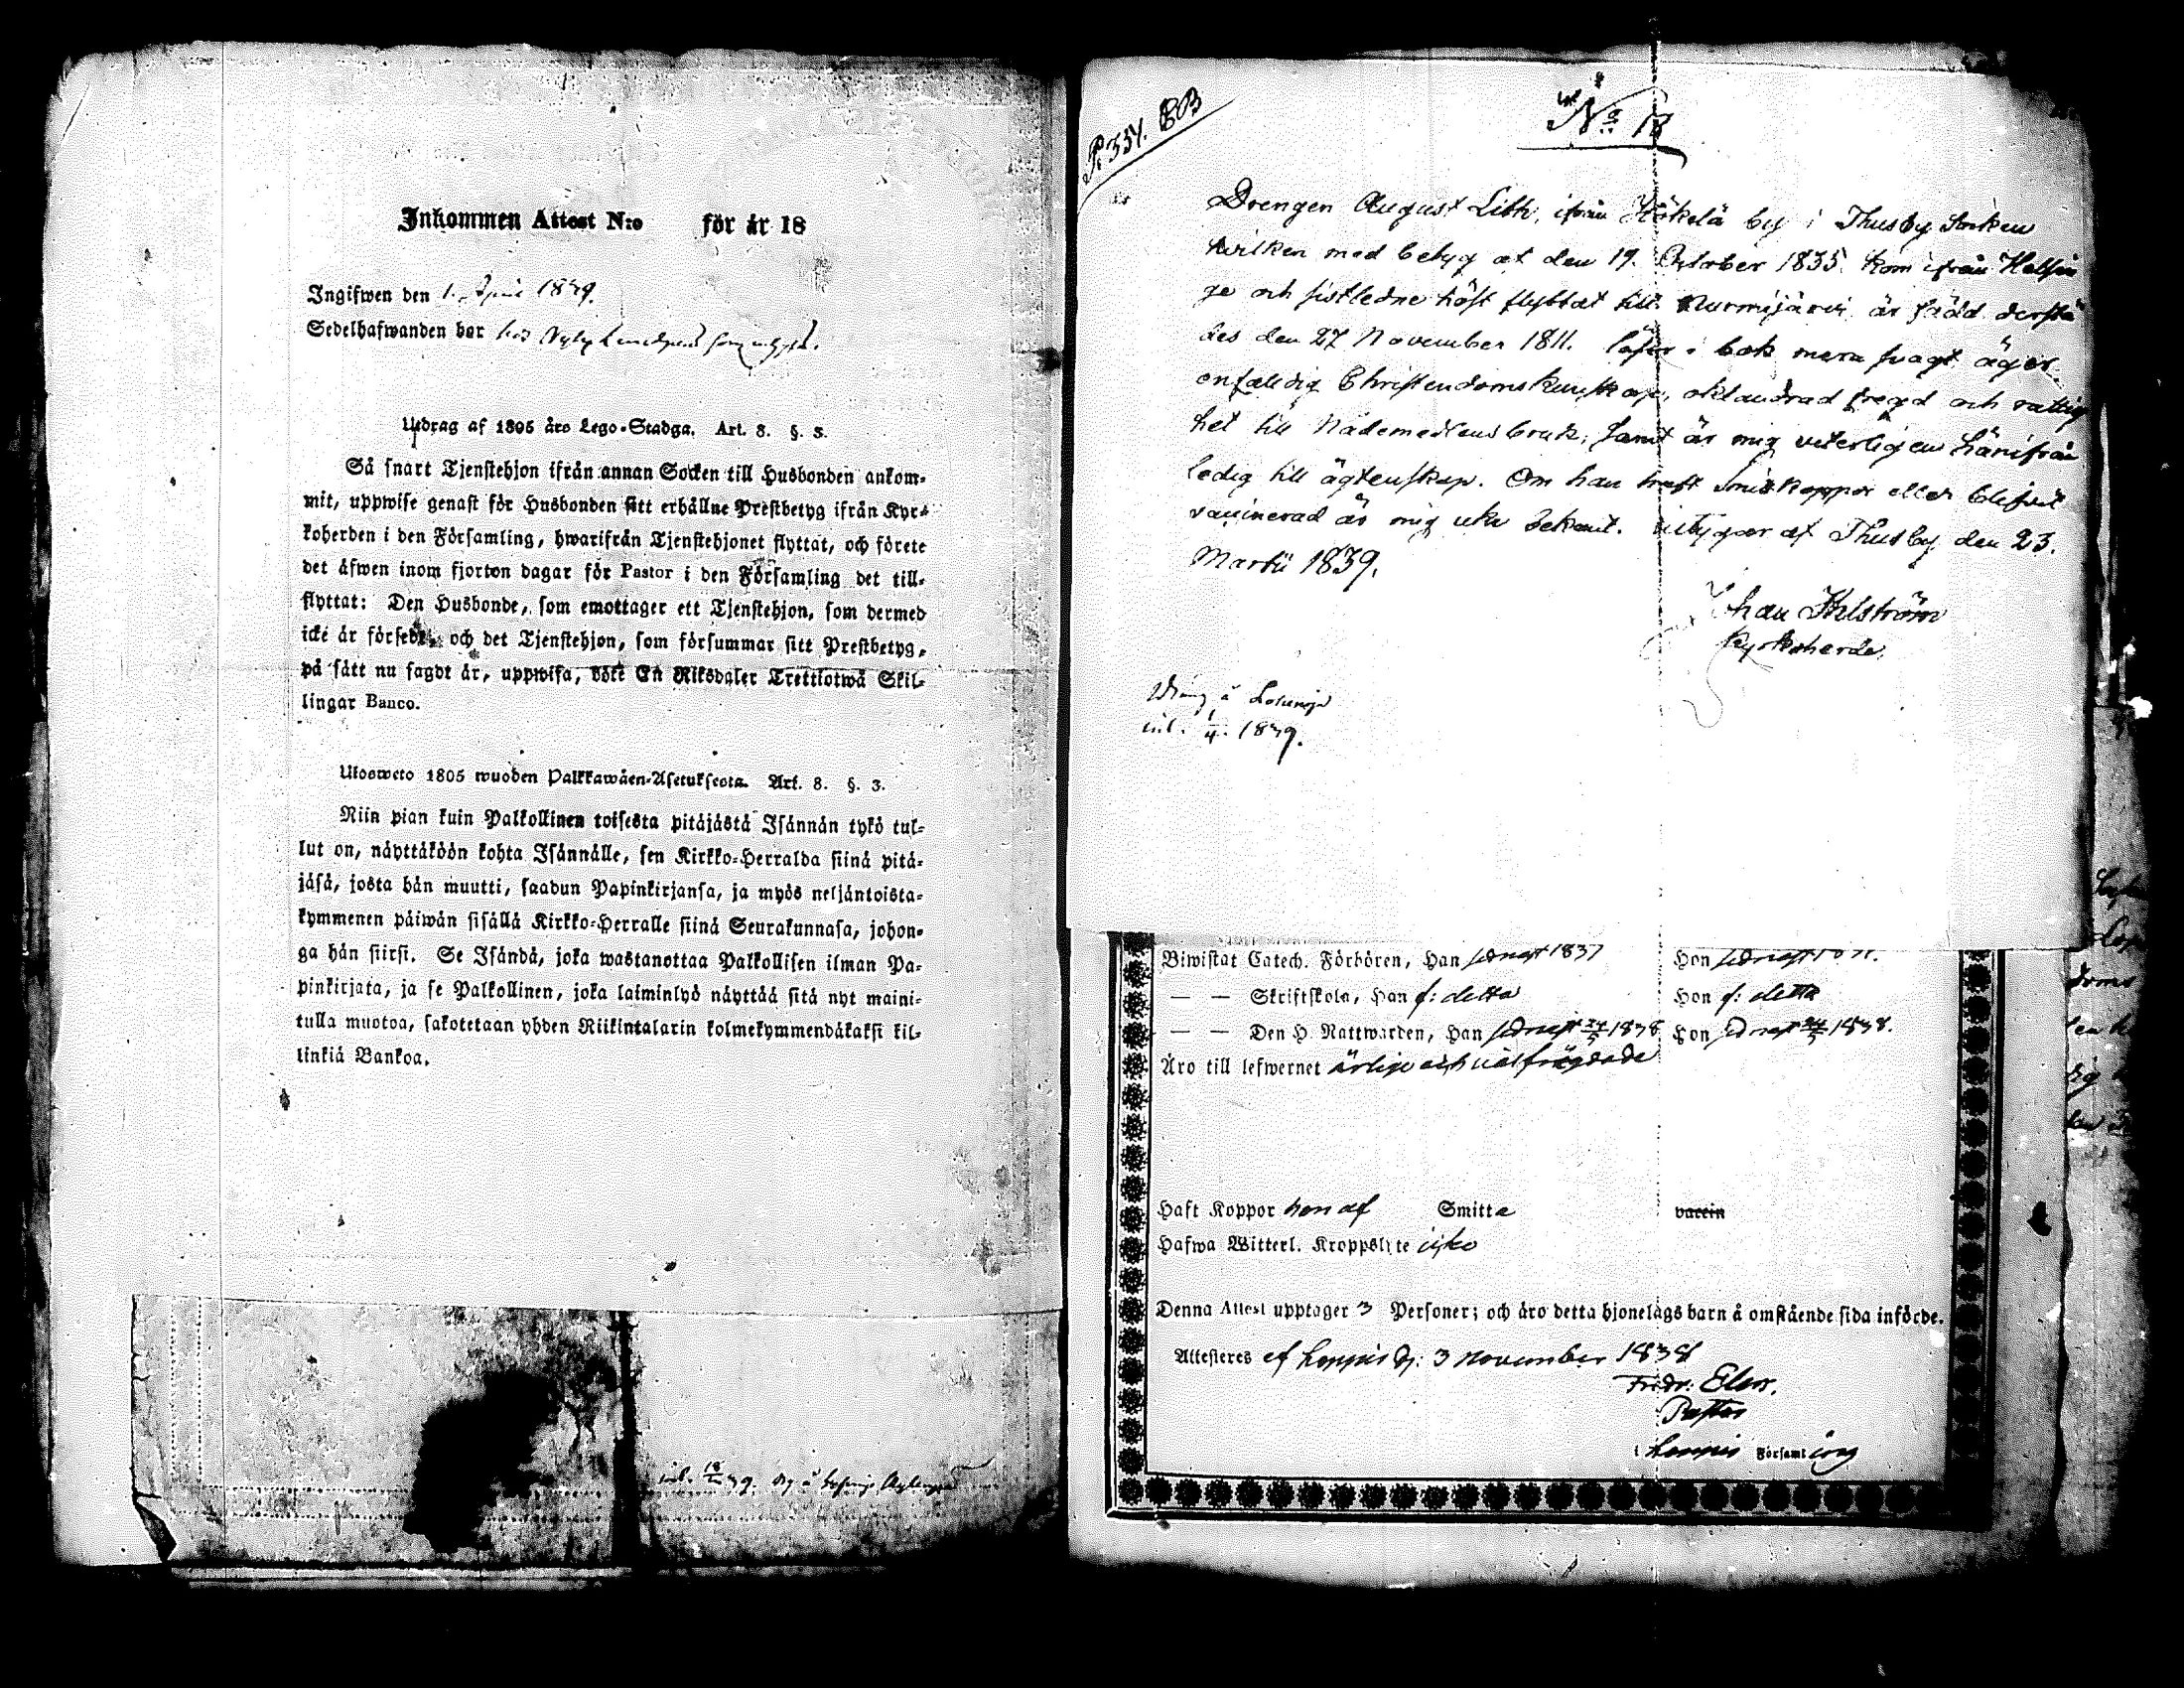 Inkommen Attest N:o för år 18
Ingifwen den 1. April 1839.
Sedelhafwanden bor hos
Utdrag af 1805 års Lego-Stadga. Art. 8. §. 3.
Så snart Tjenstehjon ifrån annan Socken till Husbonden ankom-
mit, uppwise genast för Husbonden sitt erhållne Prestbetyg ifrån Kyr-
koherden i den Församling, hwarifrån Tjenstehjonet flyttat, och förete
det äfwen inom fjorton dagar för Pastor i den Församling det till-
flyttat: Den Husbonde, som emottager ett Tjenstehjon, som dermed
icke är försedt, och det Tjenstehjon, som försummar sitt Prestbetyg,
på sätt nu sagdt är, uppwisa, böte En Riksdaler Trettiotwå Skil-
lingar Banco.
Ulosweto 1805 wuoden Palkkawäen-Asetuksesta. Art. 8. §. 3.
Niin pian kuin Palkollinen toisesta pitäjästä Isännän tykö tul-
lut on, näyttäköön kohta Isännälle, sen Kirkko-Herralda siinä pitä-
jäsä, josta hän muutti, saadun Papinkirjansa, ja myös neljäntoista-
kymmenen päiwän sisällä Kirkko-Herralle siinä Seurakunnasa, johon-
ga hän siirsi. Se Isändä, joka wastanottaa Palkollisen ilman Pa-
pinkirjata, ja se Palkollinen, joka laiminlyö näyttää sitä nyt maini-
tulla muotoa, sakotetaan yhden Riikintalarin kolmekymmendäkaksi kil-
linkiä Bankoa.
inl. 39.
P. 354. 803
No 18
Drengen August Lith, ifrån Hökelä by i Thusby Socken
hvilken med betyg af den 19. October 1835. kom ifrån Helsin
ge och sistledne höst flyttat till Nurmijärvi är född derstä
des den 27 November 1811. läser i bok mera svagt äger
enfaldig Christendoms kunskap, oklandrad frejd och rättig
het till Nådemedlens bruk, samt är mig veterligen härifrån
ledig till ägtenskap. Om han haft Smitkoppor eller blifvit
vaccinerad är mig icke bekant. intygar af Thusby den 23.
Martii 1839.
Johan Ihlström
Kyrkoherde.
inl. 1/4. 1839.
Biwistat Catech. Förhören, Han sednast 1837 Hon sednast
— — Skriftskola, Han f: detta Hon f: detta
— — Den H. Nattwarden, Han sednast 1838 Hon sednast 1838.
Äro till lefwernet ärlige och väl frägdade
Haft Koppor hon af Smitta vaccin
Hafwa Witterl. Kroppslyte icke
Denna Attest upptager 3 Personer; och äro detta hjonelags barn å omstående sida införde.
Attesteres af Loppis d: 3 November 1838
Fredr: Elers.
Pastor
i Loppis Församling